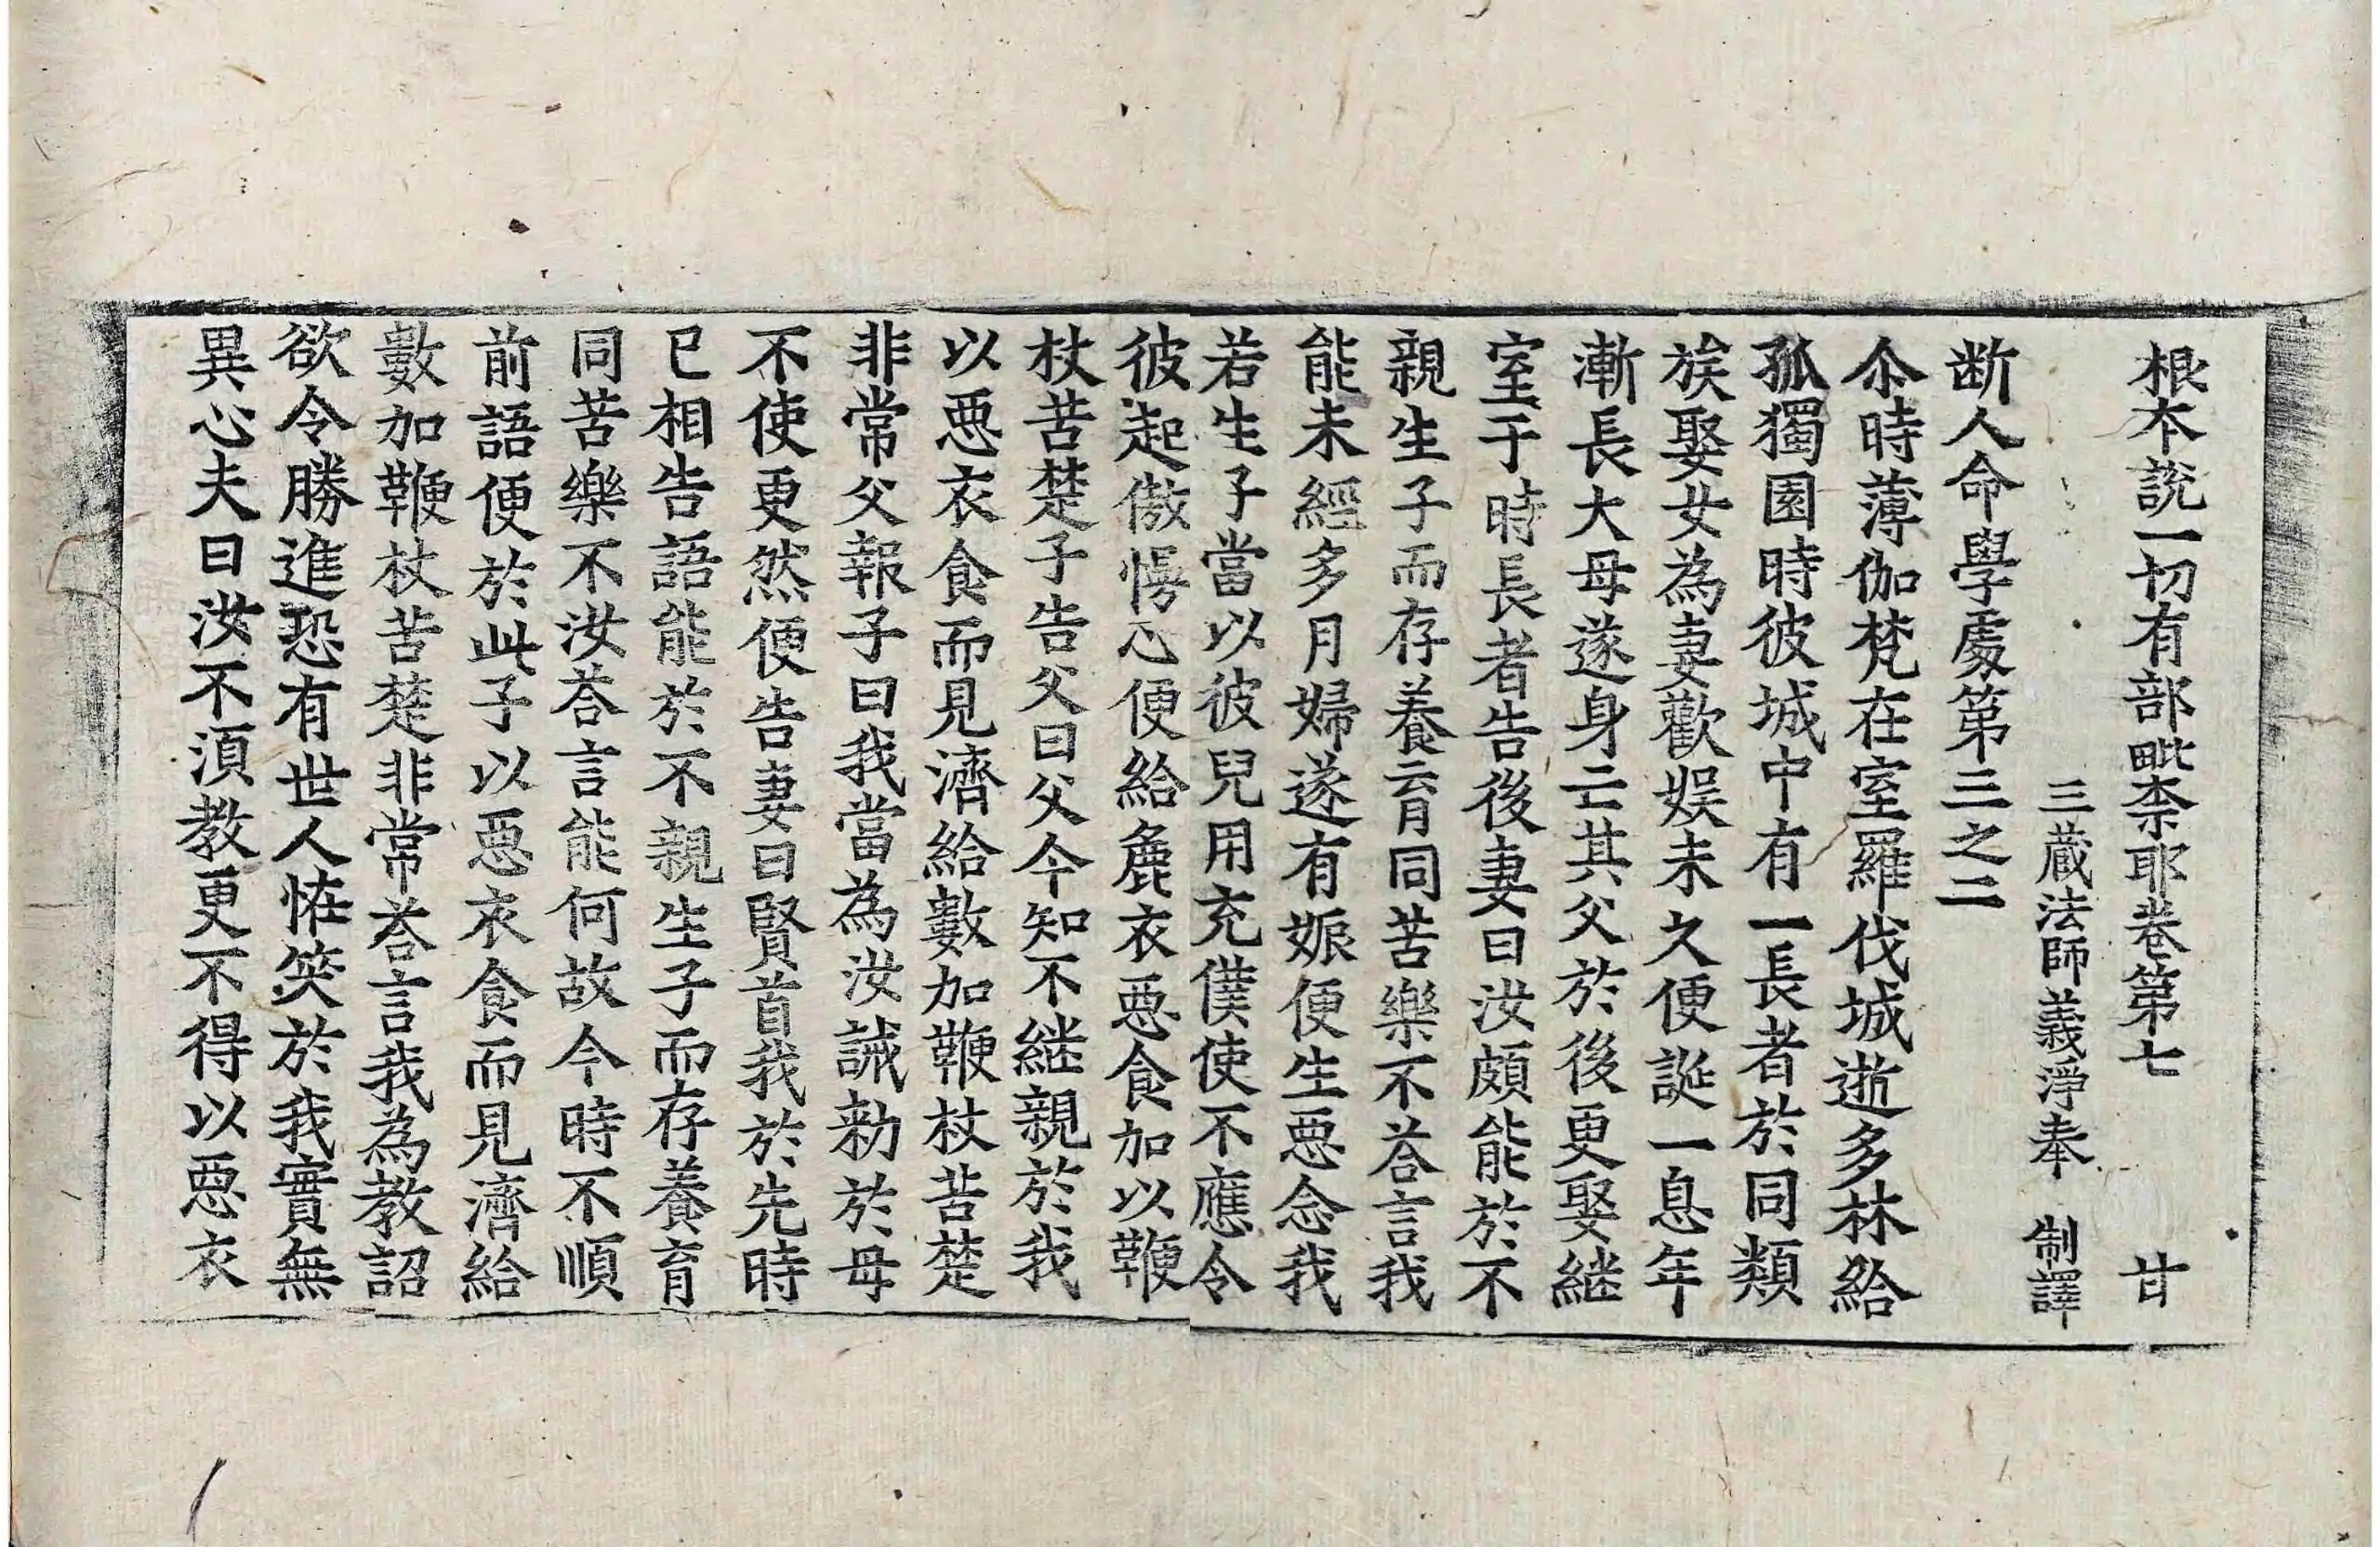 根本說一切有部毗柰耶卷第七 甘
三蔵法師義淨奉 制譯
断人命學處第三之二
尒時薄伽梵在室羅伐城逝多林給
孤獨園時彼城中有一長者於同類
族娶女為妻歡娛未久便誕一息年
漸長大母遂身亡其父於後更娶継
室于時長者告後妻曰汝頗能於不
親生子而存養育同苦樂不荅言我
能未經多月婦遂有娠便生惡念我
若生子當以彼兒用充僕使不應令
彼起傲慢心便給麁衣惡食加以鞭
杖苦楚子告父曰父今知不継親於我
以惡衣食而見濟給數加鞭杖苦楚
非常父報子曰我當為汝誡勑於母
不使更然便告妻曰賢首我於先時
已相告語能於不親生子而存養育
同苦樂不汝荅言能何故今時不順
前語便於此子以惡衣食而見濟給
數加鞭杖苦楚非常荅言我為教詔
欲令勝進恐有世人恠笑於我實無
異心夫曰汝不湏教更不得以惡衣